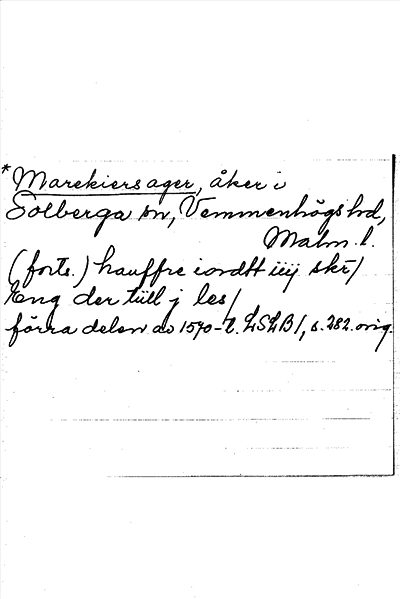 *Marekiersager, åker i
Solberga sn, Vemmenhögs hd,
Malm. l.
(forts.) hauffre iordtt iiij skr/
Eng der tiill j les/
förra delen av 1570-t. LSLB1, s. 282. orig.